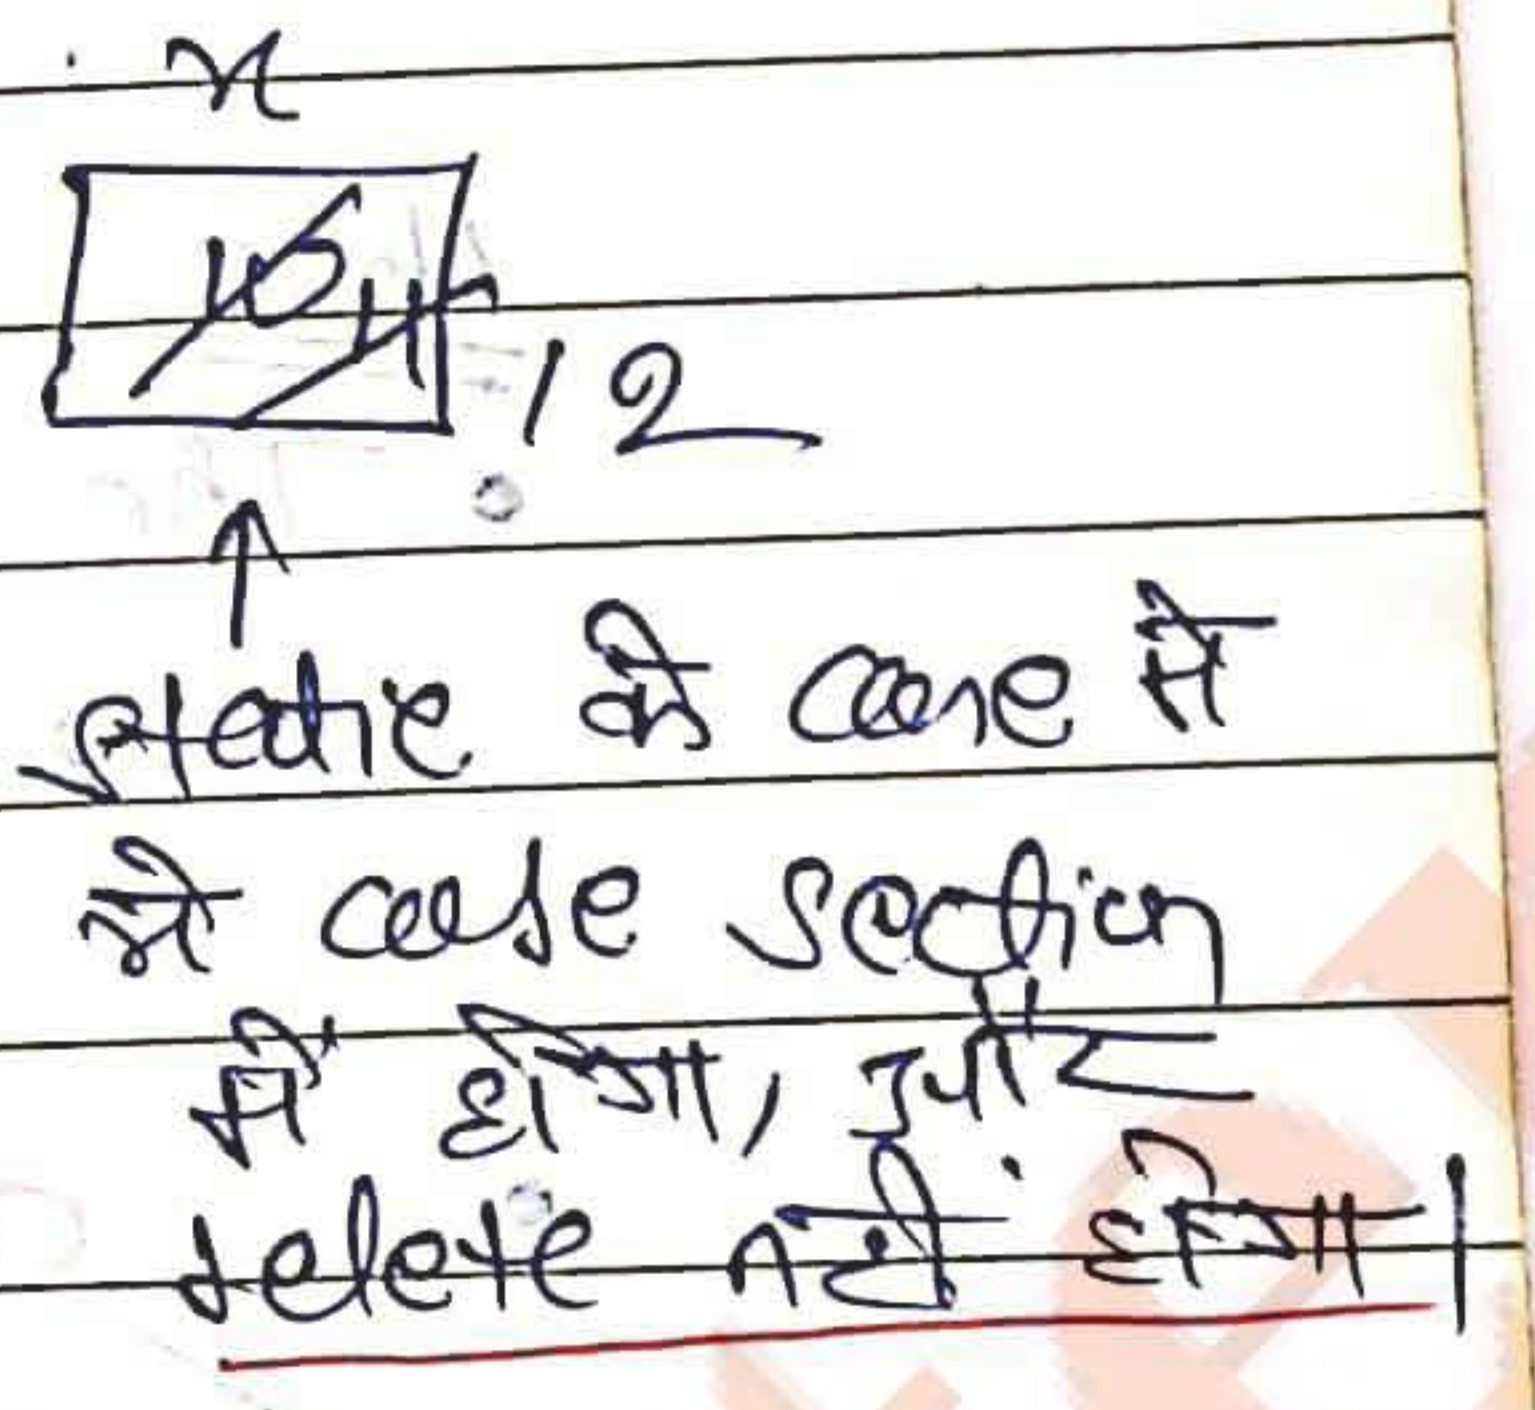 x
10 11
12
static के case में
ये code section
में होगा, और
delete नहीं होगा।